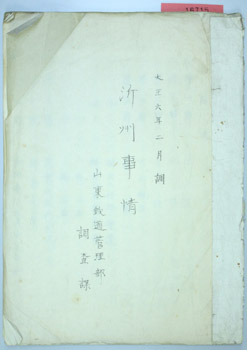 大正六年二月調
沂州事情
山東鉄道管理部
調査課